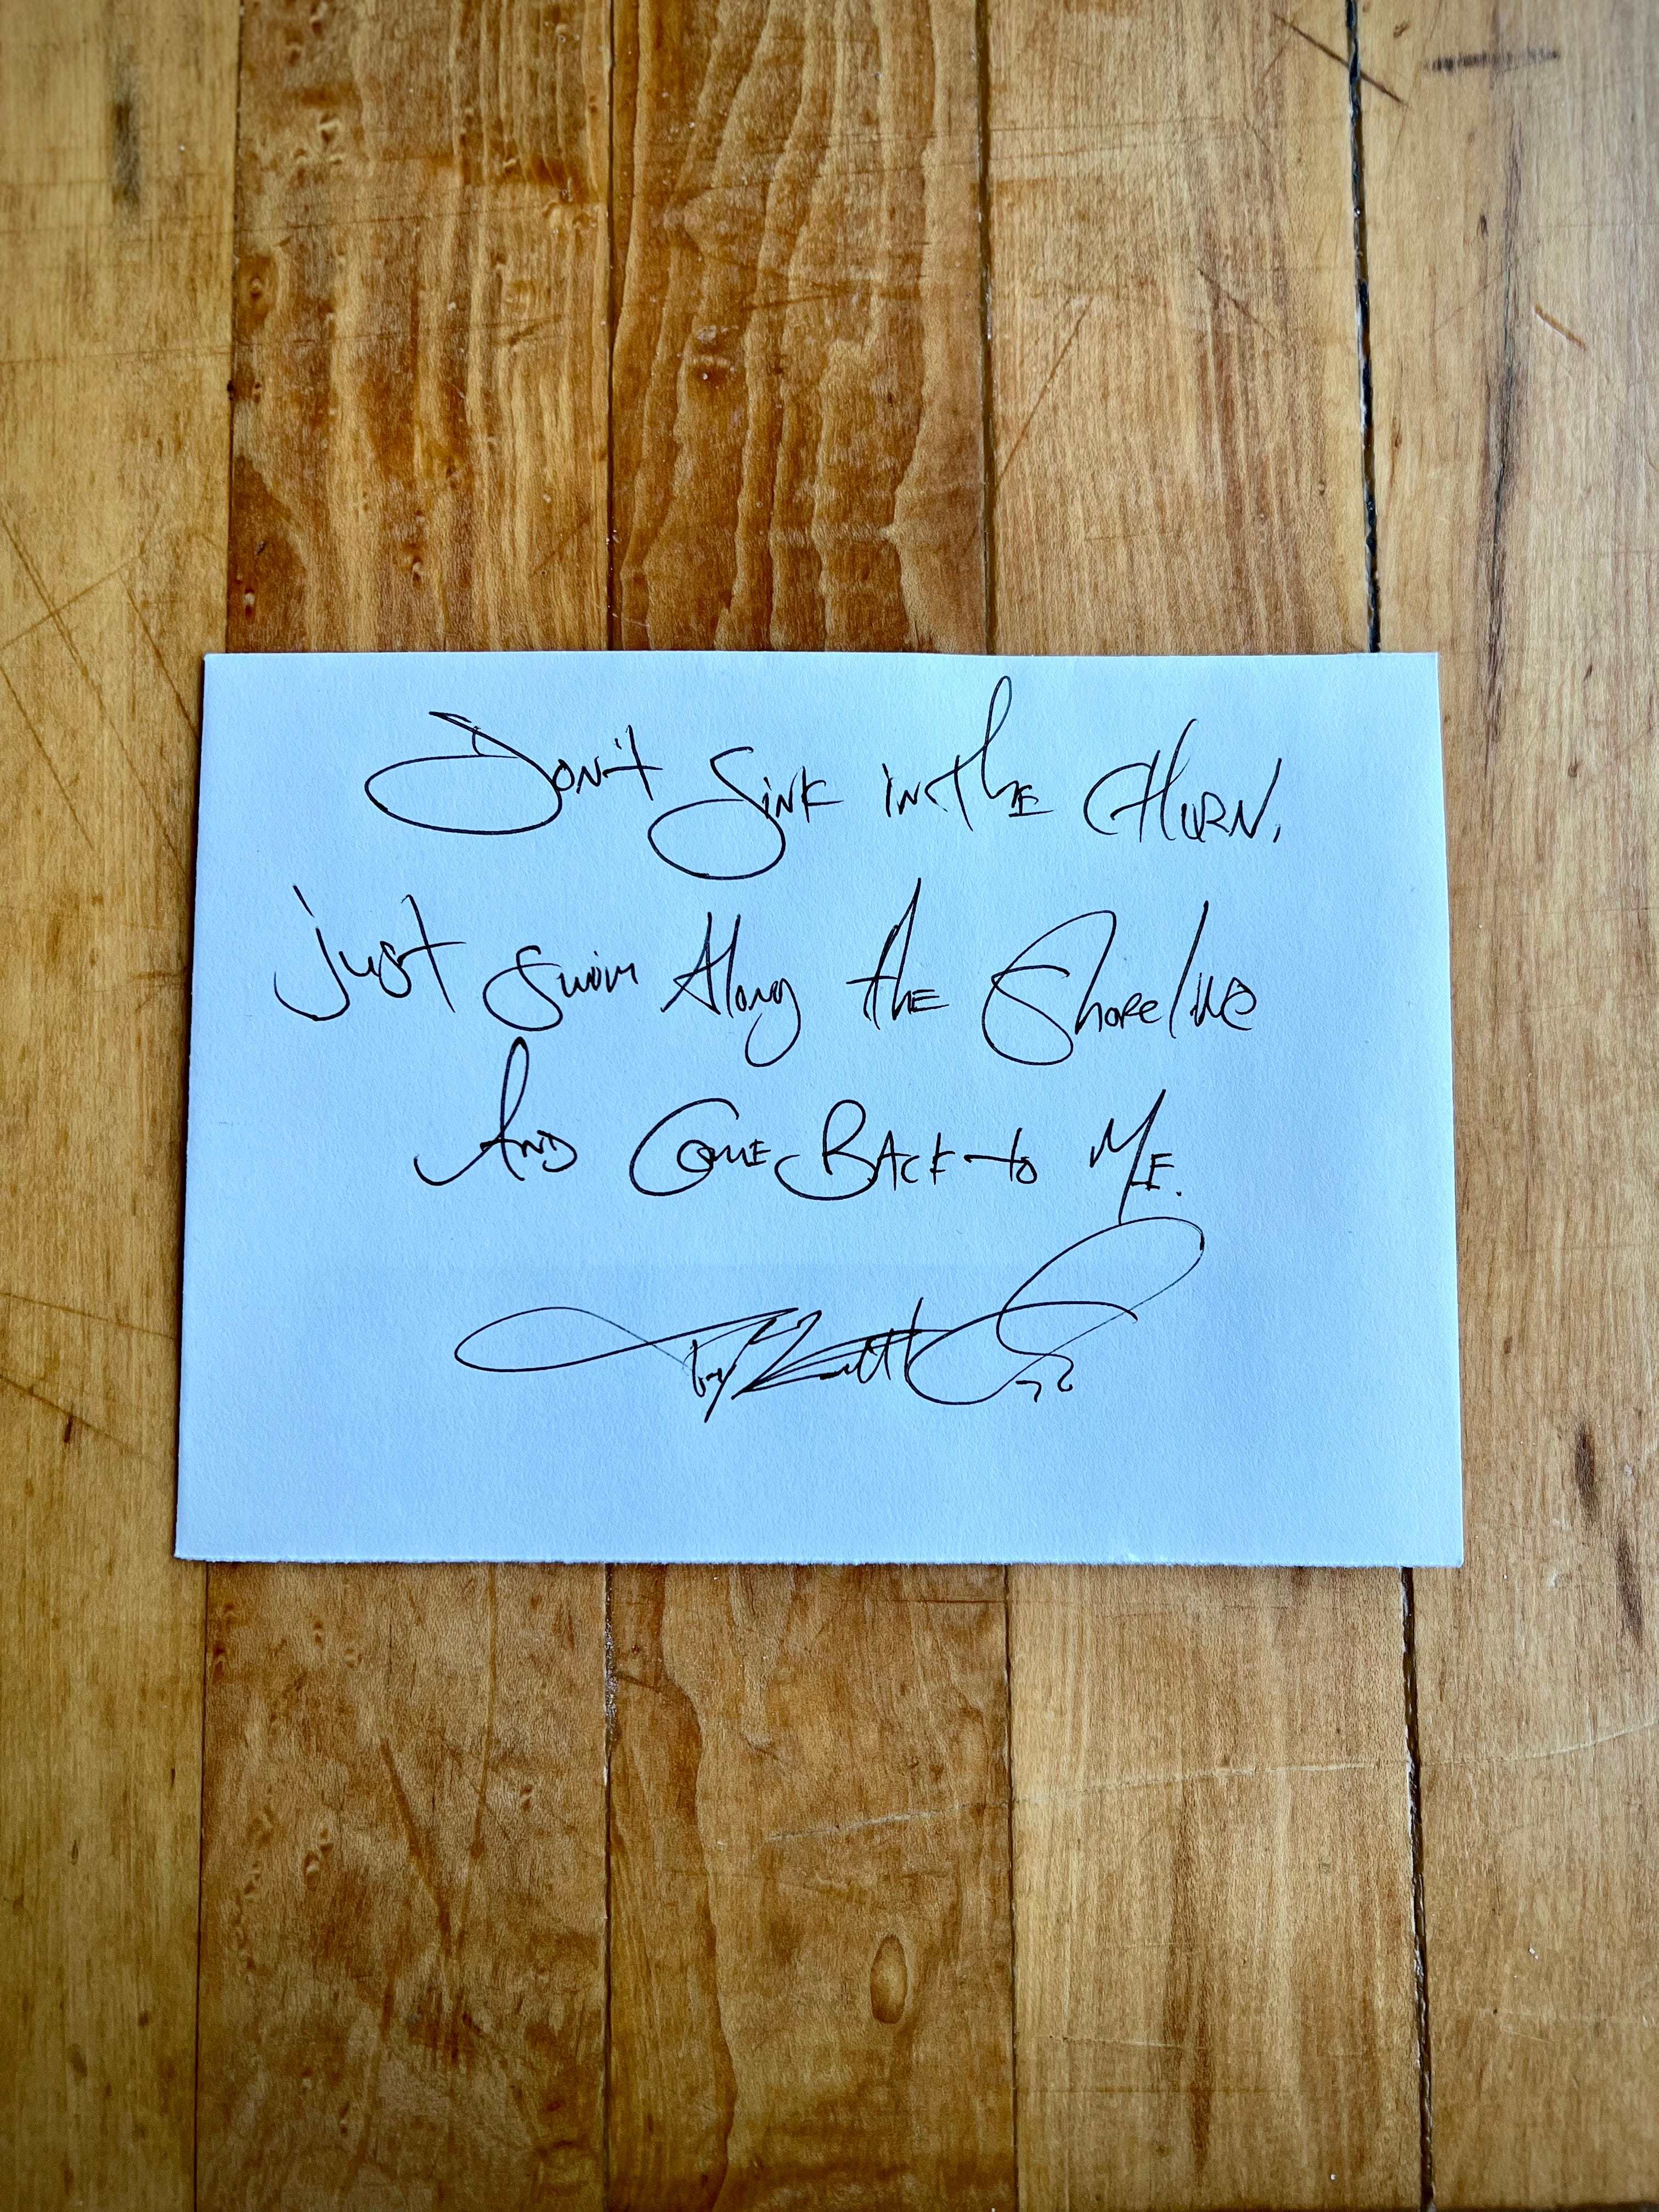 Don't Sink in the CHURN,
just swim Along the Shoreline
AND COME BACK to ME.